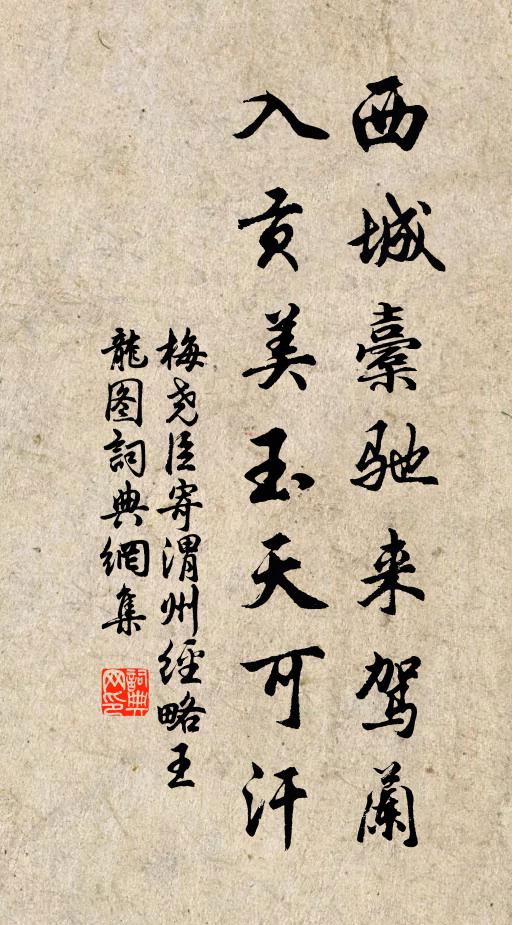 西城橐驰来驾兰
入贡美玉天可汗
梅尧臣寄渭州经略王
龙图词典网集
詞典网印